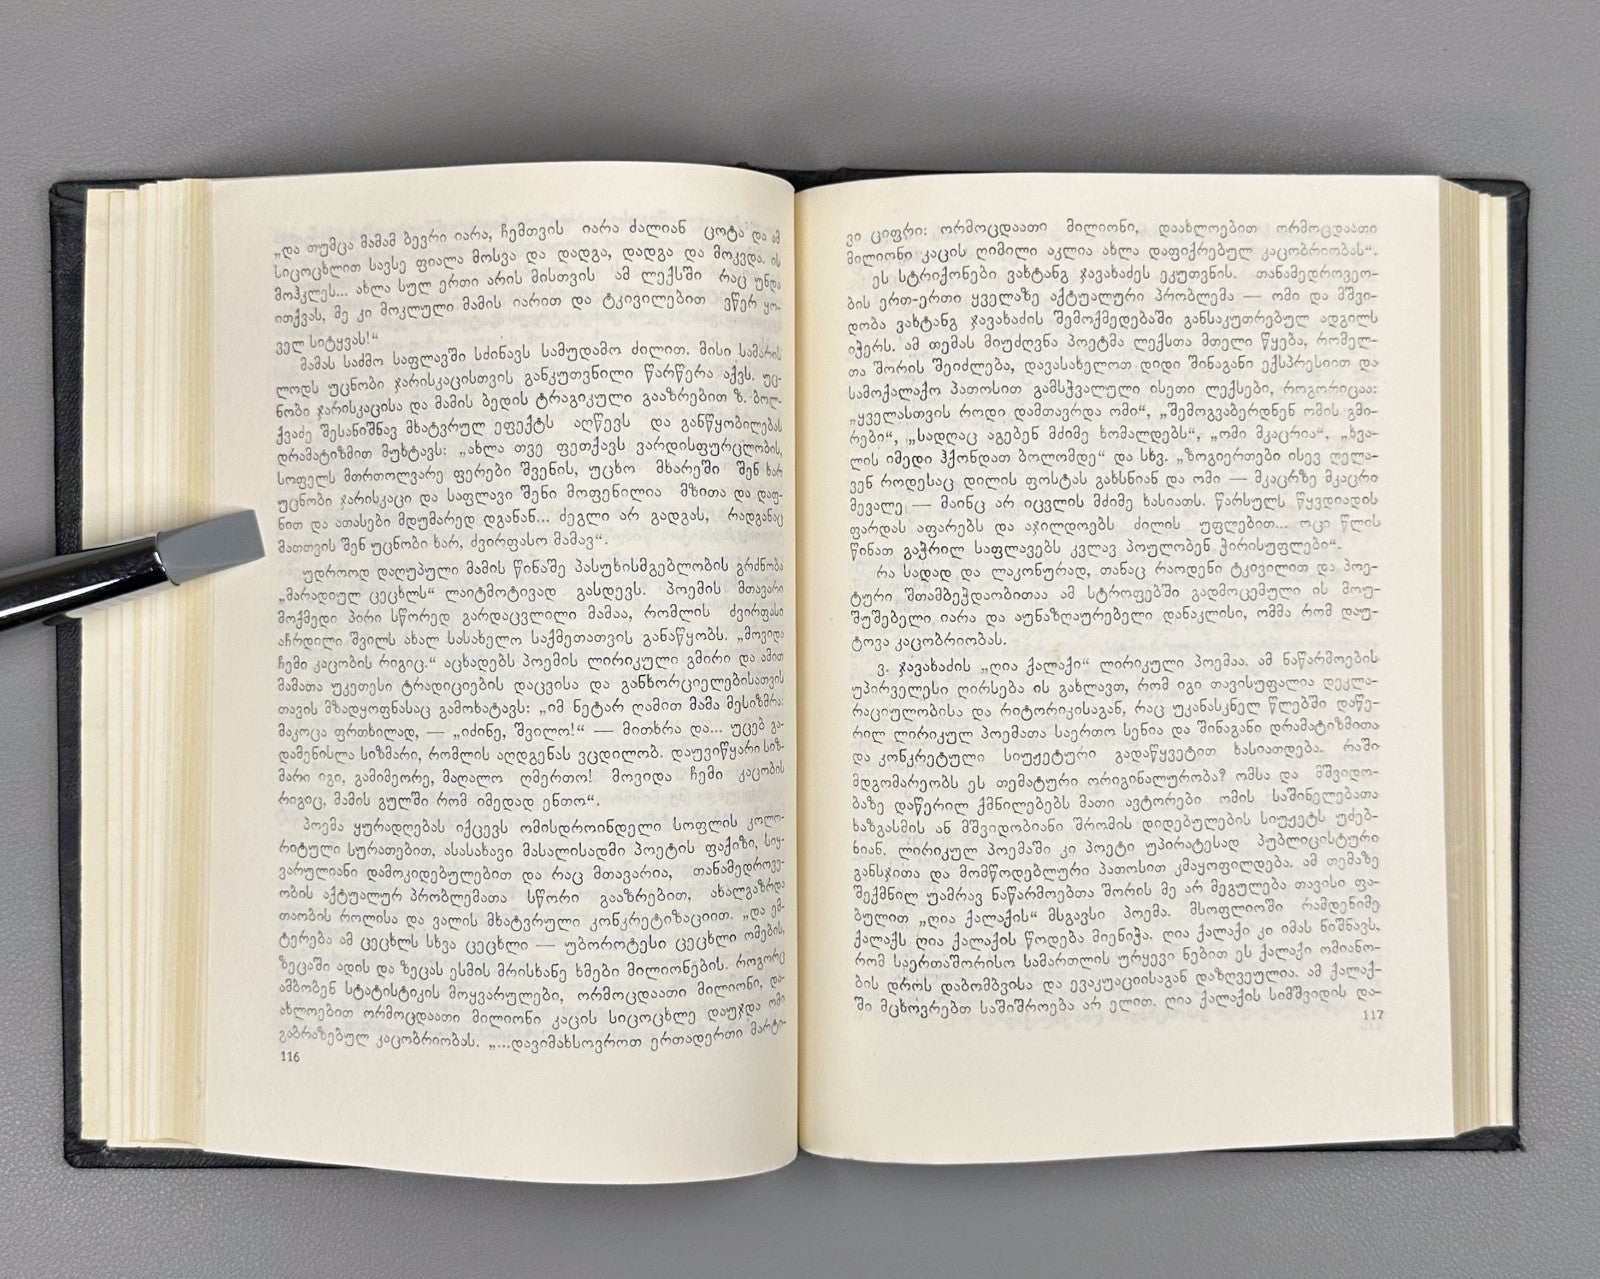 „და თუმცა მამამ ბევრი იარა, ჩემთვის იარა ძალიან ცოტა და ამ
სიცოცხლით სავსე ფიალა მოსვა და დადგა, დადგა და მოკვდა. ის
მოჰკლეს... ახლა სულ ერთი არის მისთვის ამ ლექსში რაც უნდა
ითქვას, მე კი მოკლული მამის იარით და ტკივილებით ვწერ ყო-
ველ სიტყვას!“
მამას საძმო საფლავში სძინავს სამუდამო ძილით. მისი სამარის
ლოდს უცნობი ჯარისკაცისთვის განკუთვნილი წარწერა აქვს. უც-
ნობი ჯარისკაცისა და მამის ბედის ტრაგიკული გააზრებით ზ. ბოლ-
ქვაძე შესანიშნავ მხატვრულ ეფექტს აღწევს და განწყობილებას
დრამატიზმით მუხტავს: „ახლა თვე ფეთქავს ვარდისფურცლობის,
სოფელს მთრთოლვარე ფერები შვენის, უცხო მხარეში შენ ხარ
უცნობი ჯარისკაცი და საფლავი შენი მოფენილია მზითა და დაფ-
ნით და ათასები მდუმარედ დგანან... ძეგლი არ გადგას, რადგანაც
მათთვის შენ უცნობი ხარ, ძვირფასო მამავ“.
უდროოდ დაღუპული მამის წინაშე პასუხისმგებლობის გრძნობა
„მარადიულ ცეცხლს“ ლაიტმოტივად გასდევს. პოემის მთავარი
მოქმედი პირი სწორედ გარდაცვლილი მამაა, რომლის ძვირფასი
აჩრდილი შვილს ახალ სასახელო საქმეთათვის განაწყობს. „მოვიდა
ჩემი კაცობის რიგიც.“ აცხადებს პოემის ლირიკული გმირი და ამით
მამათა უკეთესი ტრადიციების დაცვისა და განხორციელებისათვის
თავის მზადყოფნასაც გამოხატავს: „იმ ნეტარ ღამით მამა მესიზმრა:
მაკოცა ფრთხილად, — „იძინე, შვილო!“ — მითხრა და... უცებ გა-
დამენისლა სიზმარი, რომლის აღდგენას ვცდილობ. დაუვიწყარი სიზ-
მარი იგი, გამიმეორე, მაღალო ღმერთო! მოვიდა ჩემი კაცობის
რიგიც, მამის გულში რომ იმედად ენთო“.
პოემა ყურადღებას იქცევს ომისდროინდელი სოფლის კოლო-
რიტული სურათებით, ასასახავი მასალისადმი პოეტის ფაქიზი, სიყ-
ვარულიანი დამოკიდებულებით და რაც მთავარია, თანამედროვე-
ობის აქტუალურ პრობლემათა სწორი გააზრებით, ახალგაზრდა
თაობის როლისა და ვალის მხატვრული კონკრეტიზაციით. „და ემ-
ტერება ამ ცეცხლს სხვა ცეცხლი — უბოროტესი ცეცხლი ომების,
ზეცაში ადის და ზეცას ესმის მრისხანე ხმები მილიონების. როგორც
ამბობენ სტატისტიკის მოყვარულები, ორმოცდაათი მილიონი, და-
ახლოებით ორმოცდაათი მილიონი კაცის სიცოცხლე დაუჯდა ომი
გაბრაზებულ კაცობრიობას. „...დავიმახსოვროთ ერთადერთი მარტი-
116
ვი ციფრი: ორმოცდაათი მილიონი, დაახლოებით ორმოცდაათი
მილიონი კაცის ღიმილი აკლია ახლა დაფიქრებულ კაცობრიობას“.
ეს სტრიქონები ვახტანგ ჯავახაძეს ეკუთვნის. თანამედროვეო-
ბის ერთ-ერთი ყველაზე აქტუალური პრობლემა — ომი და მშვი-
დობა ვახტანგ ჯავახაძის შემოქმედებაში განსაკუთრებულ ადგილს
იჭერს. ამ თემას მიუძღვნა პოეტმა ლექსთა მთელი წყება, რომელ-
თა შორის შეიძლება, დავასახელოთ დიდი შინაგანი ექსპრესიით და
სამოქალაქო პათოსით გამსჭვალული ისეთი ლექსები, როგორიცაა:
„ყველასთვის როდი დამთავრდა ომი“, „შემოგვაბერდნენ ომის გმი-
რები“, „სადღაც აგებენ მძიმე ხომალდებს“, „ომი მკაცრია“, „ხვა-
ლის იმედი ჰქონდათ ბოლომდე“ და სხვ. „ზოგიერთები ისევ ღელა-
ვენ როდესაც დილის ფოსტას გახსნიან და ომი — მკაცრზე მკაცრი
მევალე — მაინც არ იცვლის მძიმე ხასიათს. წარსულს წყვდიადის
ფარდას აფარებს და აჯილდოებს ძილის უფლებით... ოცი წლის
წინათ გაჭრილ საფლავებს კვლავ პოულობენ ჭირისუფლები“.
რა სადად და ლაკონურად, თანაც რაოდენი ტკივილით და პოე-
ტური შთამბეჭდაობითაა ამ სტროფებში გადმოცემული ის მოუ-
შუშებელი იარა და აუნაზღაურებელი დანაკლისი, ომმა რომ დაუ-
ტოვა კაცობრიობას.
ვ. ჯავახაძის „ღია ქალაქი“ ლირიკული პოემაა. ამ ნაწარმოების
უპირველესი ღირსება ის გახლავთ, რომ იგი თავისუფალია დეკლა-
რაციულობისა და რიტორიკისაგან, რაც უკანასკნელ წლებში დაწე-
რილ ლირიკულ პოემათა საერთო სენია და შინაგანი დრამატიზმითა
და კონკრეტული სიუჟეტური გადაწყვეტით ხასიათდება. რაში
მდგომარეობს ეს თემატური ორიგინალურობა? ომსა და მშვიდო-
ბაზე დაწერილ ქმნილებებს მათი ავტორები ომის საშინელებათა
ხაზგასმის ან მშვიდობიანი შრომის დიდებულების სიუჟეტს უძებ-
ნიან. ლირიკულ პოემაში კი პოეტი უპირატესად პუბლიცისტური
განსჯითა და მომწოდებლური პათოსით კმაყოფილდება. ამ თემაზე
შექმნილ უამრავ ნაწარმოებთა შორის მე არ მეგულება თავისი ფა-
ბულით „ღია ქალაქის“ მსგავსი პოემა. მსოფლიოში რამდენიმე
ქალაქს ღია ქალაქის წოდება მიენიჭა. ღია ქალაქი კი იმას ნიშნავს,
რომ საერთაშორისო სამართლის ურყევი ნებით ეს ქალაქი ომიანო-
ბის დროს დაბომბვისა და ევაკუაციისაგან დაზღვეულია. ამ ქალაქ-
ში მცხოვრებთ საშიშროება არ ელით. ღია ქალაქის სიმშვიდის და-
117